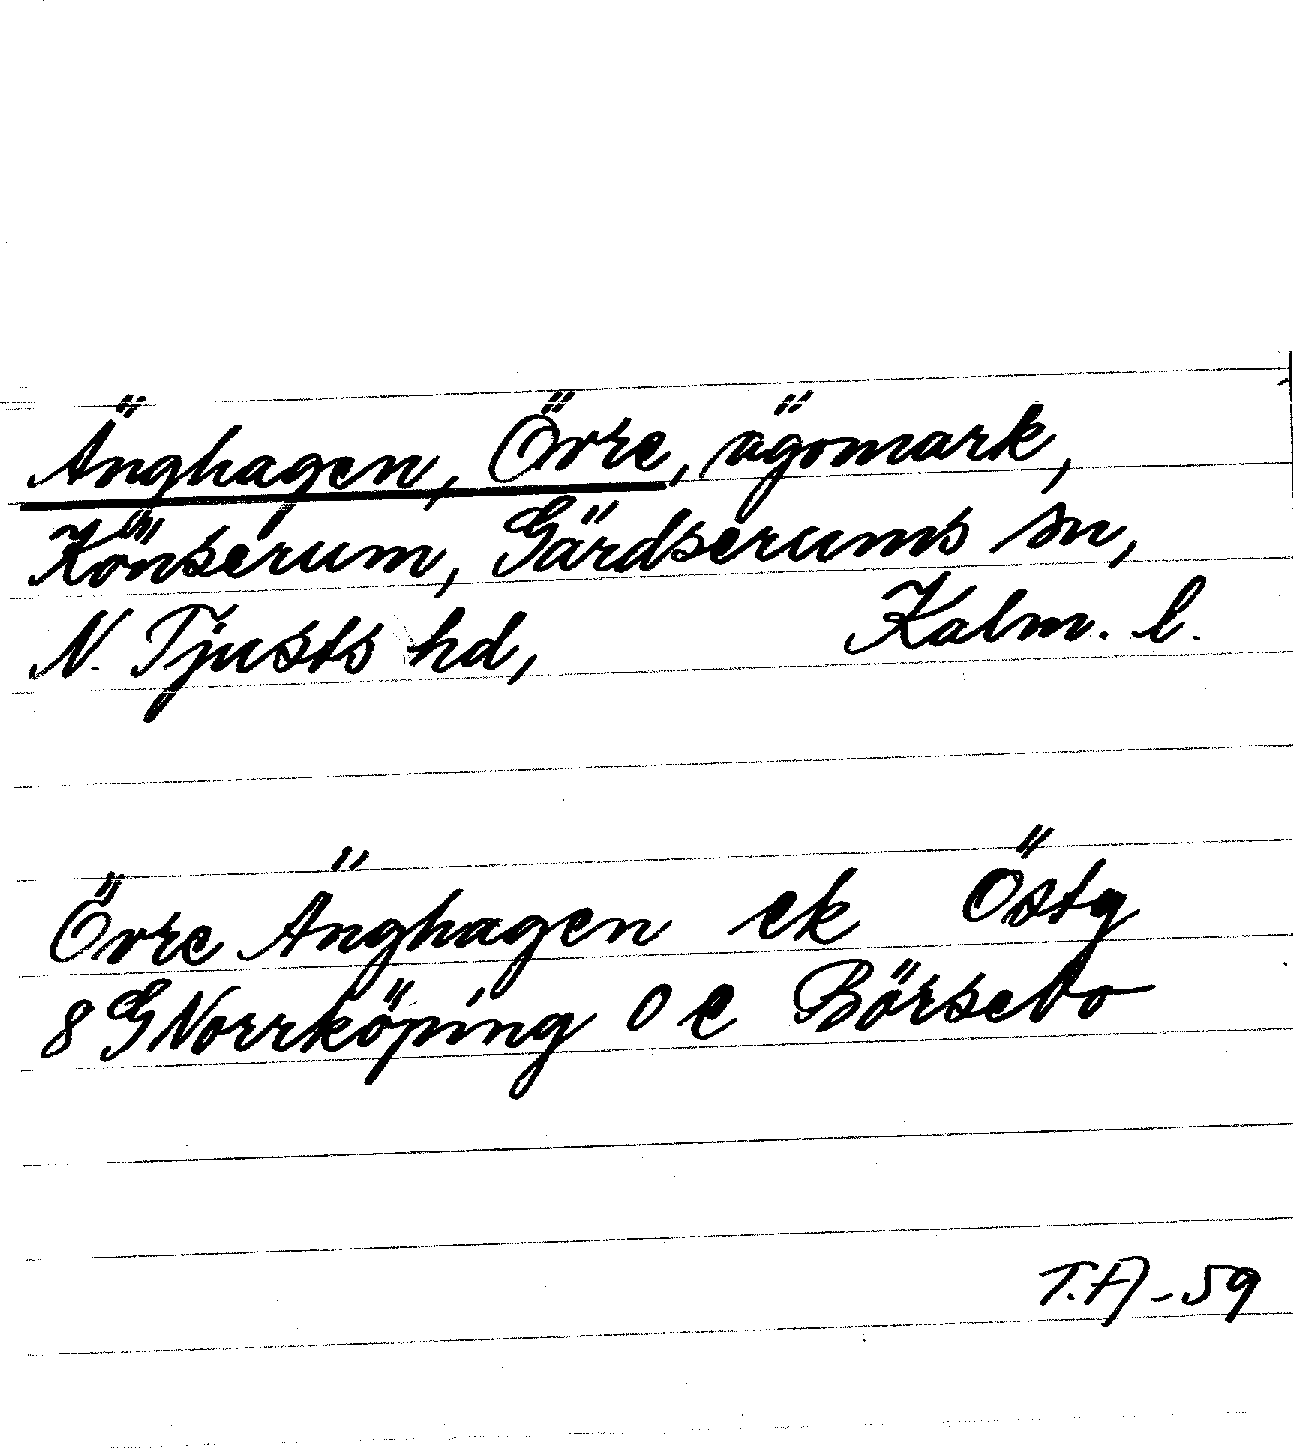 Änghagen, Övre, ägomark,
Könserum, Gärdserums sn,
N. Tjusts hd, Kalm. l.
Övre Änghagen ek Östg
8 G Norrköping 0 e Börsebo
T.A-59